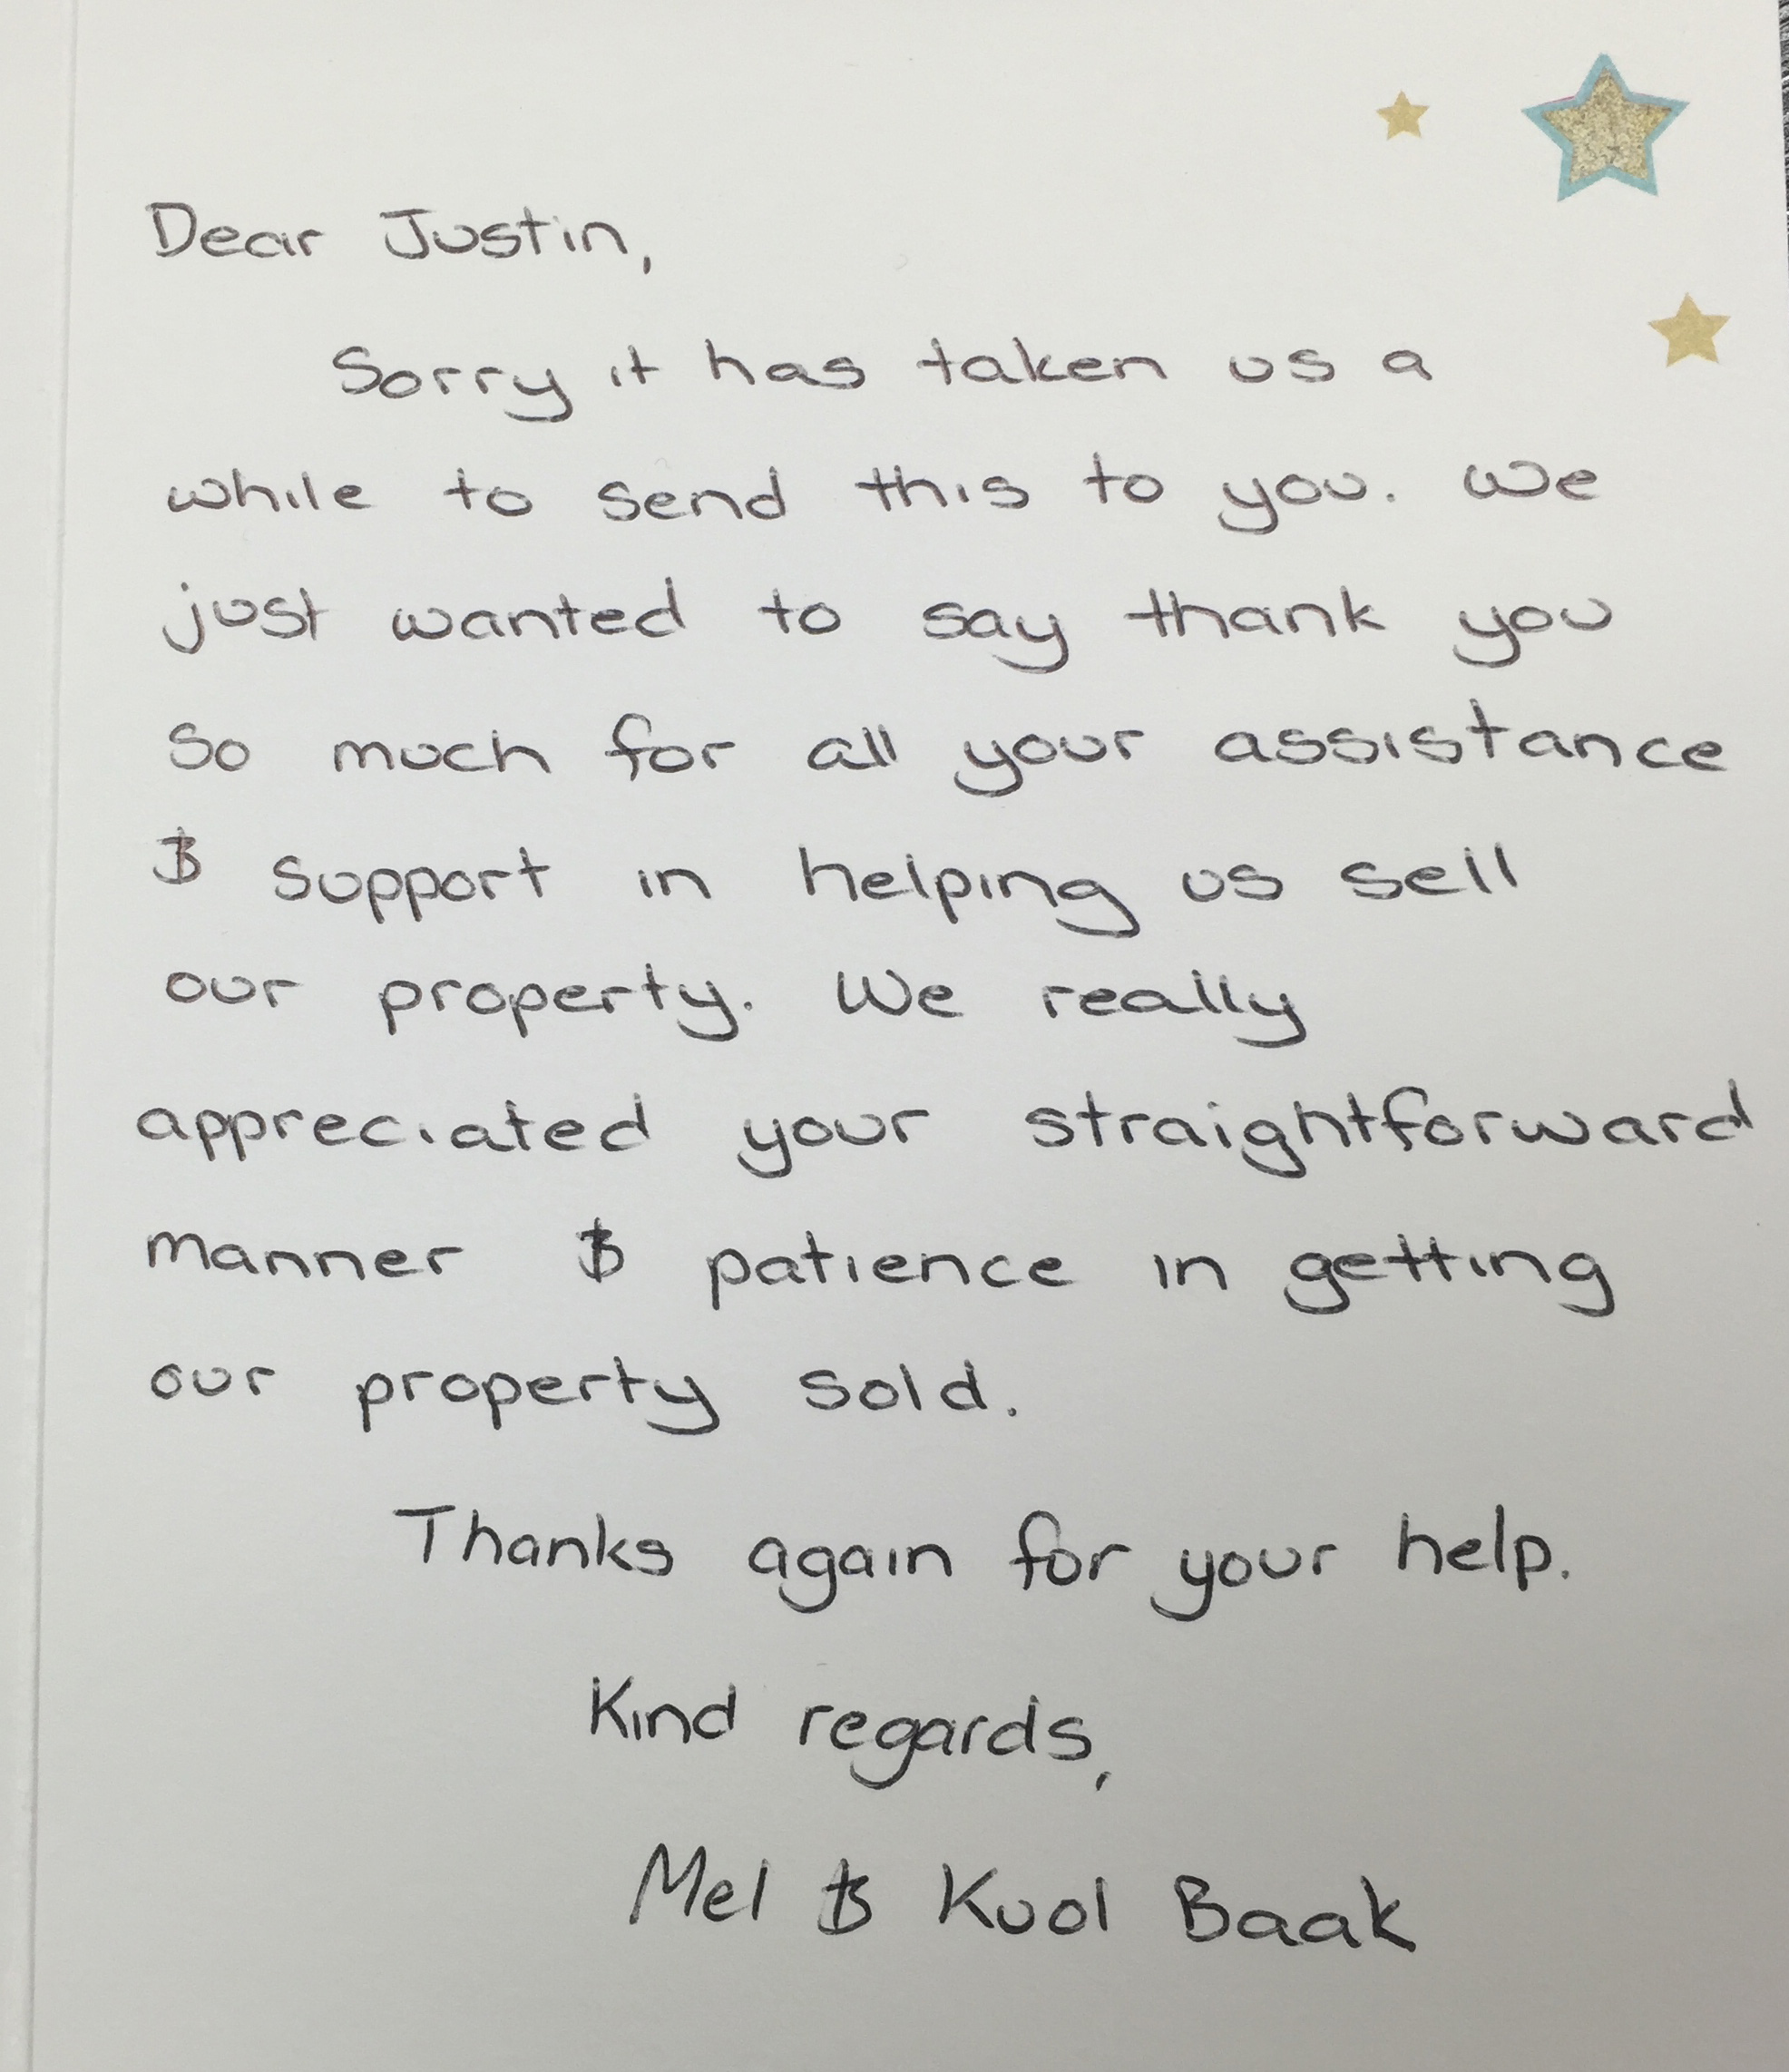 Dear Justin,
Sorry it has taken us a
while to send this to you. We
just wanted to say thank you
so much for all your assistance
& support in helping us sell
our property. We really
appreciated your straightforward
manner & patience in getting
our property sold.
Thanks again for your help.
Kind regards,
Mel & Kuol Baak